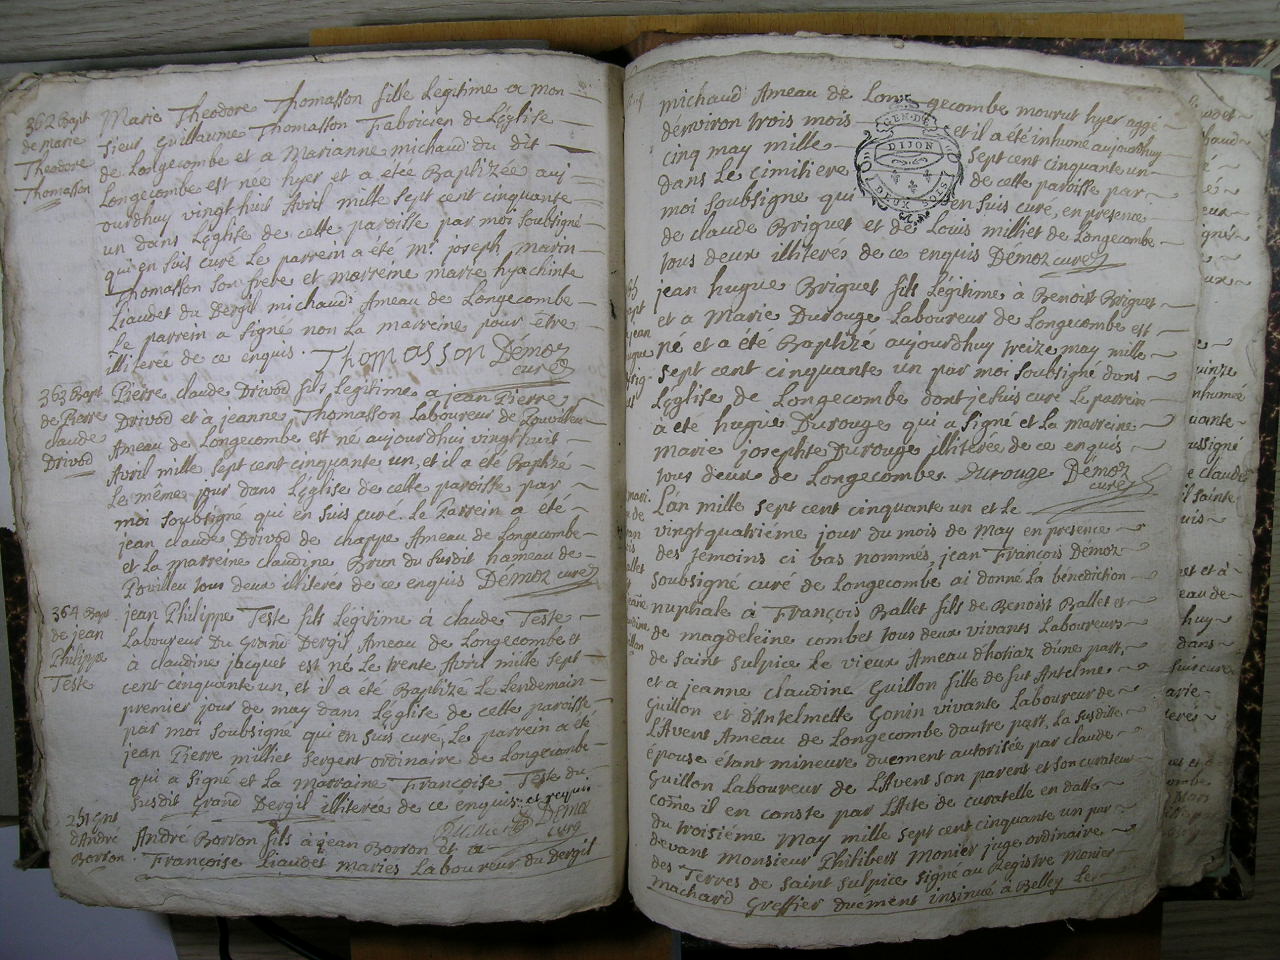 362 Bapt
de marie
Theodore
Thomasson
Marie Theodore Thomasson fille Legitime a mon
sieur Guillaume Thomasson Fabricien de L'église
de Longecombe et a Marianne michaud du dit
Longecombe est née hyer et a étée Baptizée auj
ourdhuy vingt huit Avril mille sept cent cinquante
un dans L'église de cette paroisse par moi soubsigné
qui en suis curé Le parrein a été mr. joseph marin
Thomasson son frere et marreine marie hyachinte
Liaudet du Dergil michaud Ameau de Longecombe
Le parrein a signé non La marreine pour être
illiterée de ce enquis. Thomasson Démoz
curé
363 Bapt
de Pierre
claude
Drivod
Pierre claude Drivod fils Legitime a jean Pierre
Drivod et à jeanne Thomasson Laboureur de Pouvilieu
Ameau de Longecombe est né aujourdhui vingt huit
Avril mille sept cent cinquante un, et il a été Baptizé
Le même jour dans L'église de cette paroisse par
moi soubsigné qui en suis curé. Le Parrein a été
jean claude Drivod de chappe Ameau de Longecombe
et La marreine claudine Brun du susdit hameau de
Povilieu tous deux illiteres de ce enquis Démoz curé
364 Bapt
de jean
Philippe
Teste
jean Philippe Teste fils Légitime à claude Teste
Laboureur Du Grand Dergil Ameau de Longecombe et
à claudine jacquet est né Le trente Avril mille sept
cent cinquante un, et il a été Baptizé Le Lendemain
premier jour de may dans L'église de cette paroisse
par moi soubsigné qui en suis curé, Le parrein a été
jean Pierre milliet sergent ordinaire de Longecombe
qui a signé et La Marraine Françoise Teste du
susdit Grand Dergil illiterée de ce enquis et requis
Milliet Démoz
curé
251
d'André
Borron
André Borron fils à jean Borron et a
Françoise Liaudet mariés Laboureur du Dergil
michaud Ameau de Longecombe mourut hyer aggé
d'environ trois mois et il a été inhumé aujourdhuy
cinq may mille sept cent cinquante un
dans Le cimitiere de cette paroisse par
moi soubsigné qui en suis curé, en presence
de claude Briguet et de Louis milliet de Longecombe
tous deux illiterés de ce enquis Démoz curé
GEN. DE
DIJON
DEUX SOLS
jean hugue Briguet fils Légitime à Benoist Briguet
et a Marie Durouge Laboureur de Longecombe est
né et a été Baptizé aujourdhuy treize may mille
sept cent cinquante un par moi soubsigné dans
L'église de Longecombe dont je suis curé Le parrein
a été hugue Durouge qui a signé et La marreine
marie josephte Durouge illiterée de ce enquis
tous deux de Longecombe. Durouge Démoz
curé
L'an mille sept cent cinquante un et Le
vingt quatriéme jour du mois de May en presence
des temoins ci bas nommés jean François Démoz
soubsigné curé de Longecombe ai donné La bénediction
nuptiale à François Ballet fils de Benoist Ballet et
de magdeleine combet tous deux vivants Laboureurs
de saint sulpice Le vieux Ameau d'hotiaz d'une part,
et a jeanne claudine Guillon fille de fut Antelme
Guillon et d'Antelmette Gonin vivante Laboureur de
L'Avent Ameau de Longecombe d'autre part, La susditte
épouse étant mineure duement autorisée par claude
Guillon Laboureur de L'Avent son parent et son curateur
come il en conste par L'Acte de curatelle en datte
du troisième May mille sept cent cinquante un par
devant Monsieur Philibert Monier juge ordinaire
des Terres de saint sulpice signé au Registre Monier
Machard Greffier duement insinué à Belley Le